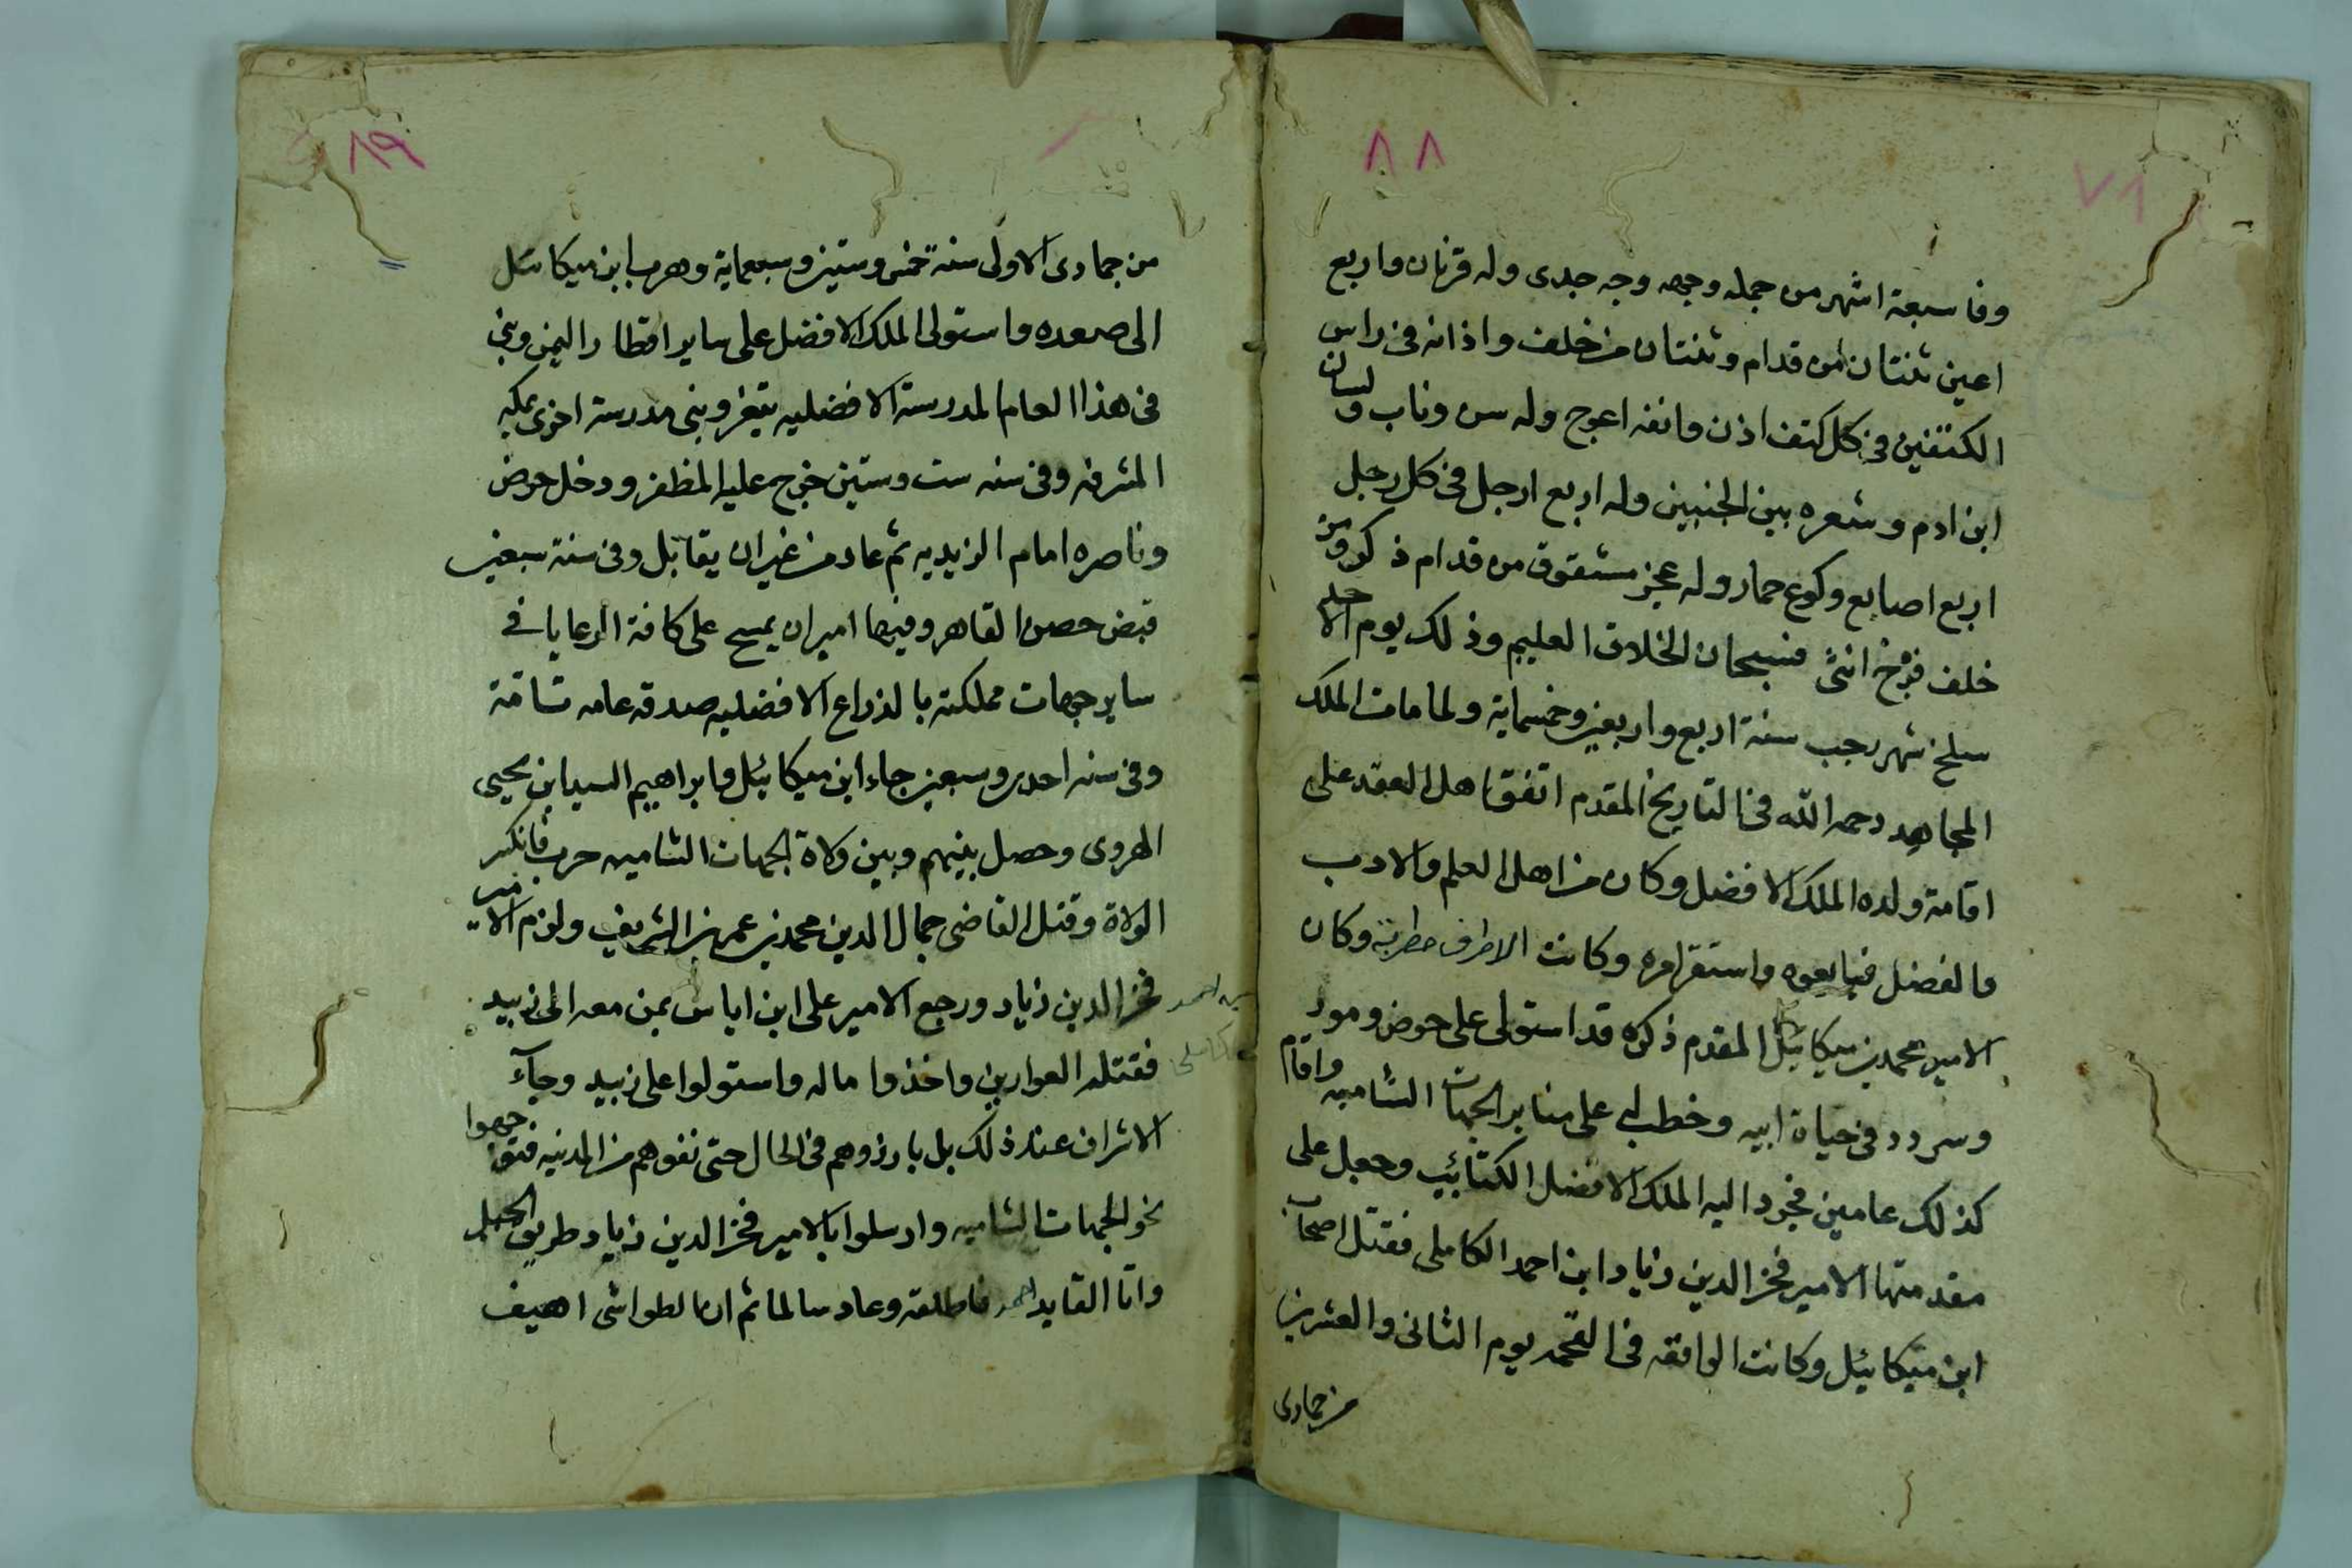 ٨٨
وفا سبعة اشهر من حمله وجهه وجه جدى وله قرنان واربع
اعين ثنتان من قدام وثنتان من خلف واذانه فى راس
الكتفين فى كل كتف اذن وانفه اعوج وله سن وناب ولسان
ابن ادم وشعره بين الجنبين وله اربع ارجل فى كل رجل
اربع اصابع وكوع حمار وله عجز مشقوق من قدام ذكر ومن
خلف فرج انثى فسبحان الخلاق العليم وذلك يوم الاحد
سلخ شهر رجب سنة اربع واربعين وخمسماية ولما مات الملك
المجاهد رحمه الله فى التاريخ المقدم اتفق اهل العقد على
اقامة ولده الملك الافضل وكان من اهل العلم والادب
والفضل فبايعوه واستقر امره وكانت الاطراف مطربة وكان
الامير محمد بن ميكائيل المقدم ذكره قد استولى على حوض ومور
وسردد فى حياة ابيه وخطب له على منابر الجهات الشاميه واقام
كذلك عامين فجرد اليه الملك الافضل الكتائب وجعل على
مقدمتها الامير فخر الدين زياد ابن احمد الكاملى فقتل اصحاب
ابن ميكائيل وكانت الواقعه فى القحمه يوم الثانى والعشرين
من جمادى
٨٩
من جمادى الاولى سنة خمس وستين وسبعماية وهرب ابن ميكائيل
الى صعده واستولى الملك الافضل على ساير اقطار اليمن وبنى
فى هذا العام المدرسة الافضليه بتعز وبنى مدرسة اخرى بمكه
المشرفه وفى سنه ست وستين خرج عليه المظفر ودخل حرض
وناصره امام الزيديه ثم عاد من غير ان يقاتل وفى سنة سبعين
قبض حصن القاهر وفيها امر ان يمسح على كافة الرعايا فى
ساير جهات مملكته بالذراع الافضليه صدقه عامه تامة
وفى سنه احدى وسبعين جاء ابن ميكائيل وابراهيم السيد ابن يحيى
الهروى وحصل بينهم وبين ولاة الجهات الشاميه حرب فانكسر
الولاة وقتل القاضى جمال الدين محمد بن عمر بن الشريف ولزم الامير
فخر الدين زياد ورجع الامير على ابن اياس بمن معه الى زبيد
فقتله العوارين واخذوا ماله واستولوا على زبيد وجاء
الاشراف عند ذلك بل بارزوهم فى الحال حتى نفوهم من المدينه فتوجهوا
نحو الجهات الشاميه وارسلوا بالامير فخر الدين زياد طريق الجبل
واتا القايد احمد فاطلقه وعاد سالما ثم ان الطواشى اهيف